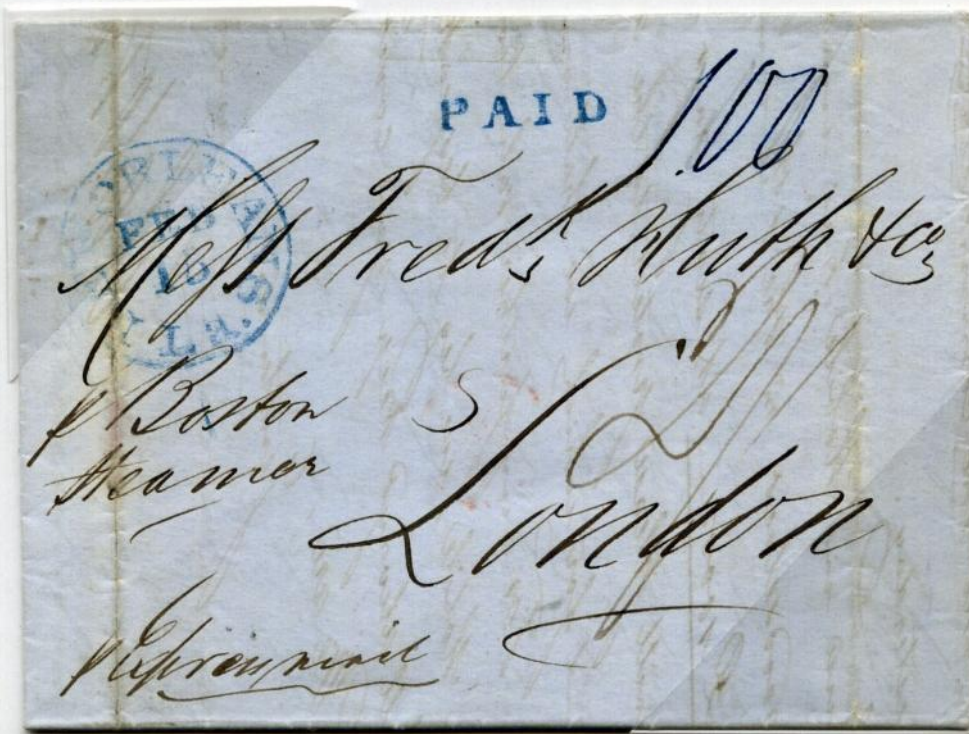 PAID 100
ORLEANS
FEB
16
La.
Mess Fredk Huth & Co
p Boston
Steamer
London
p Express mail